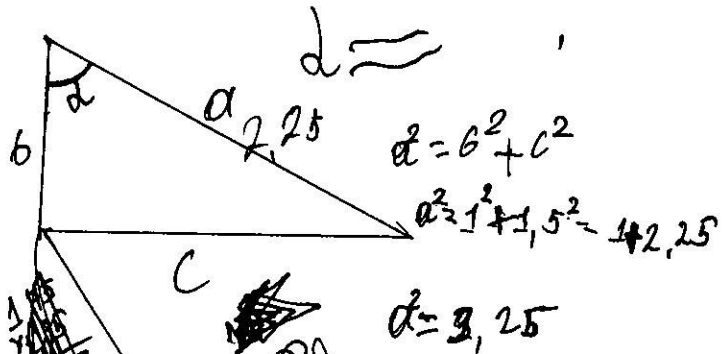 α ≈
α
a
2,25
б
a² = б² + c²
a² = 1² + 1,5² = 1+2,25
c
a² = 3,25